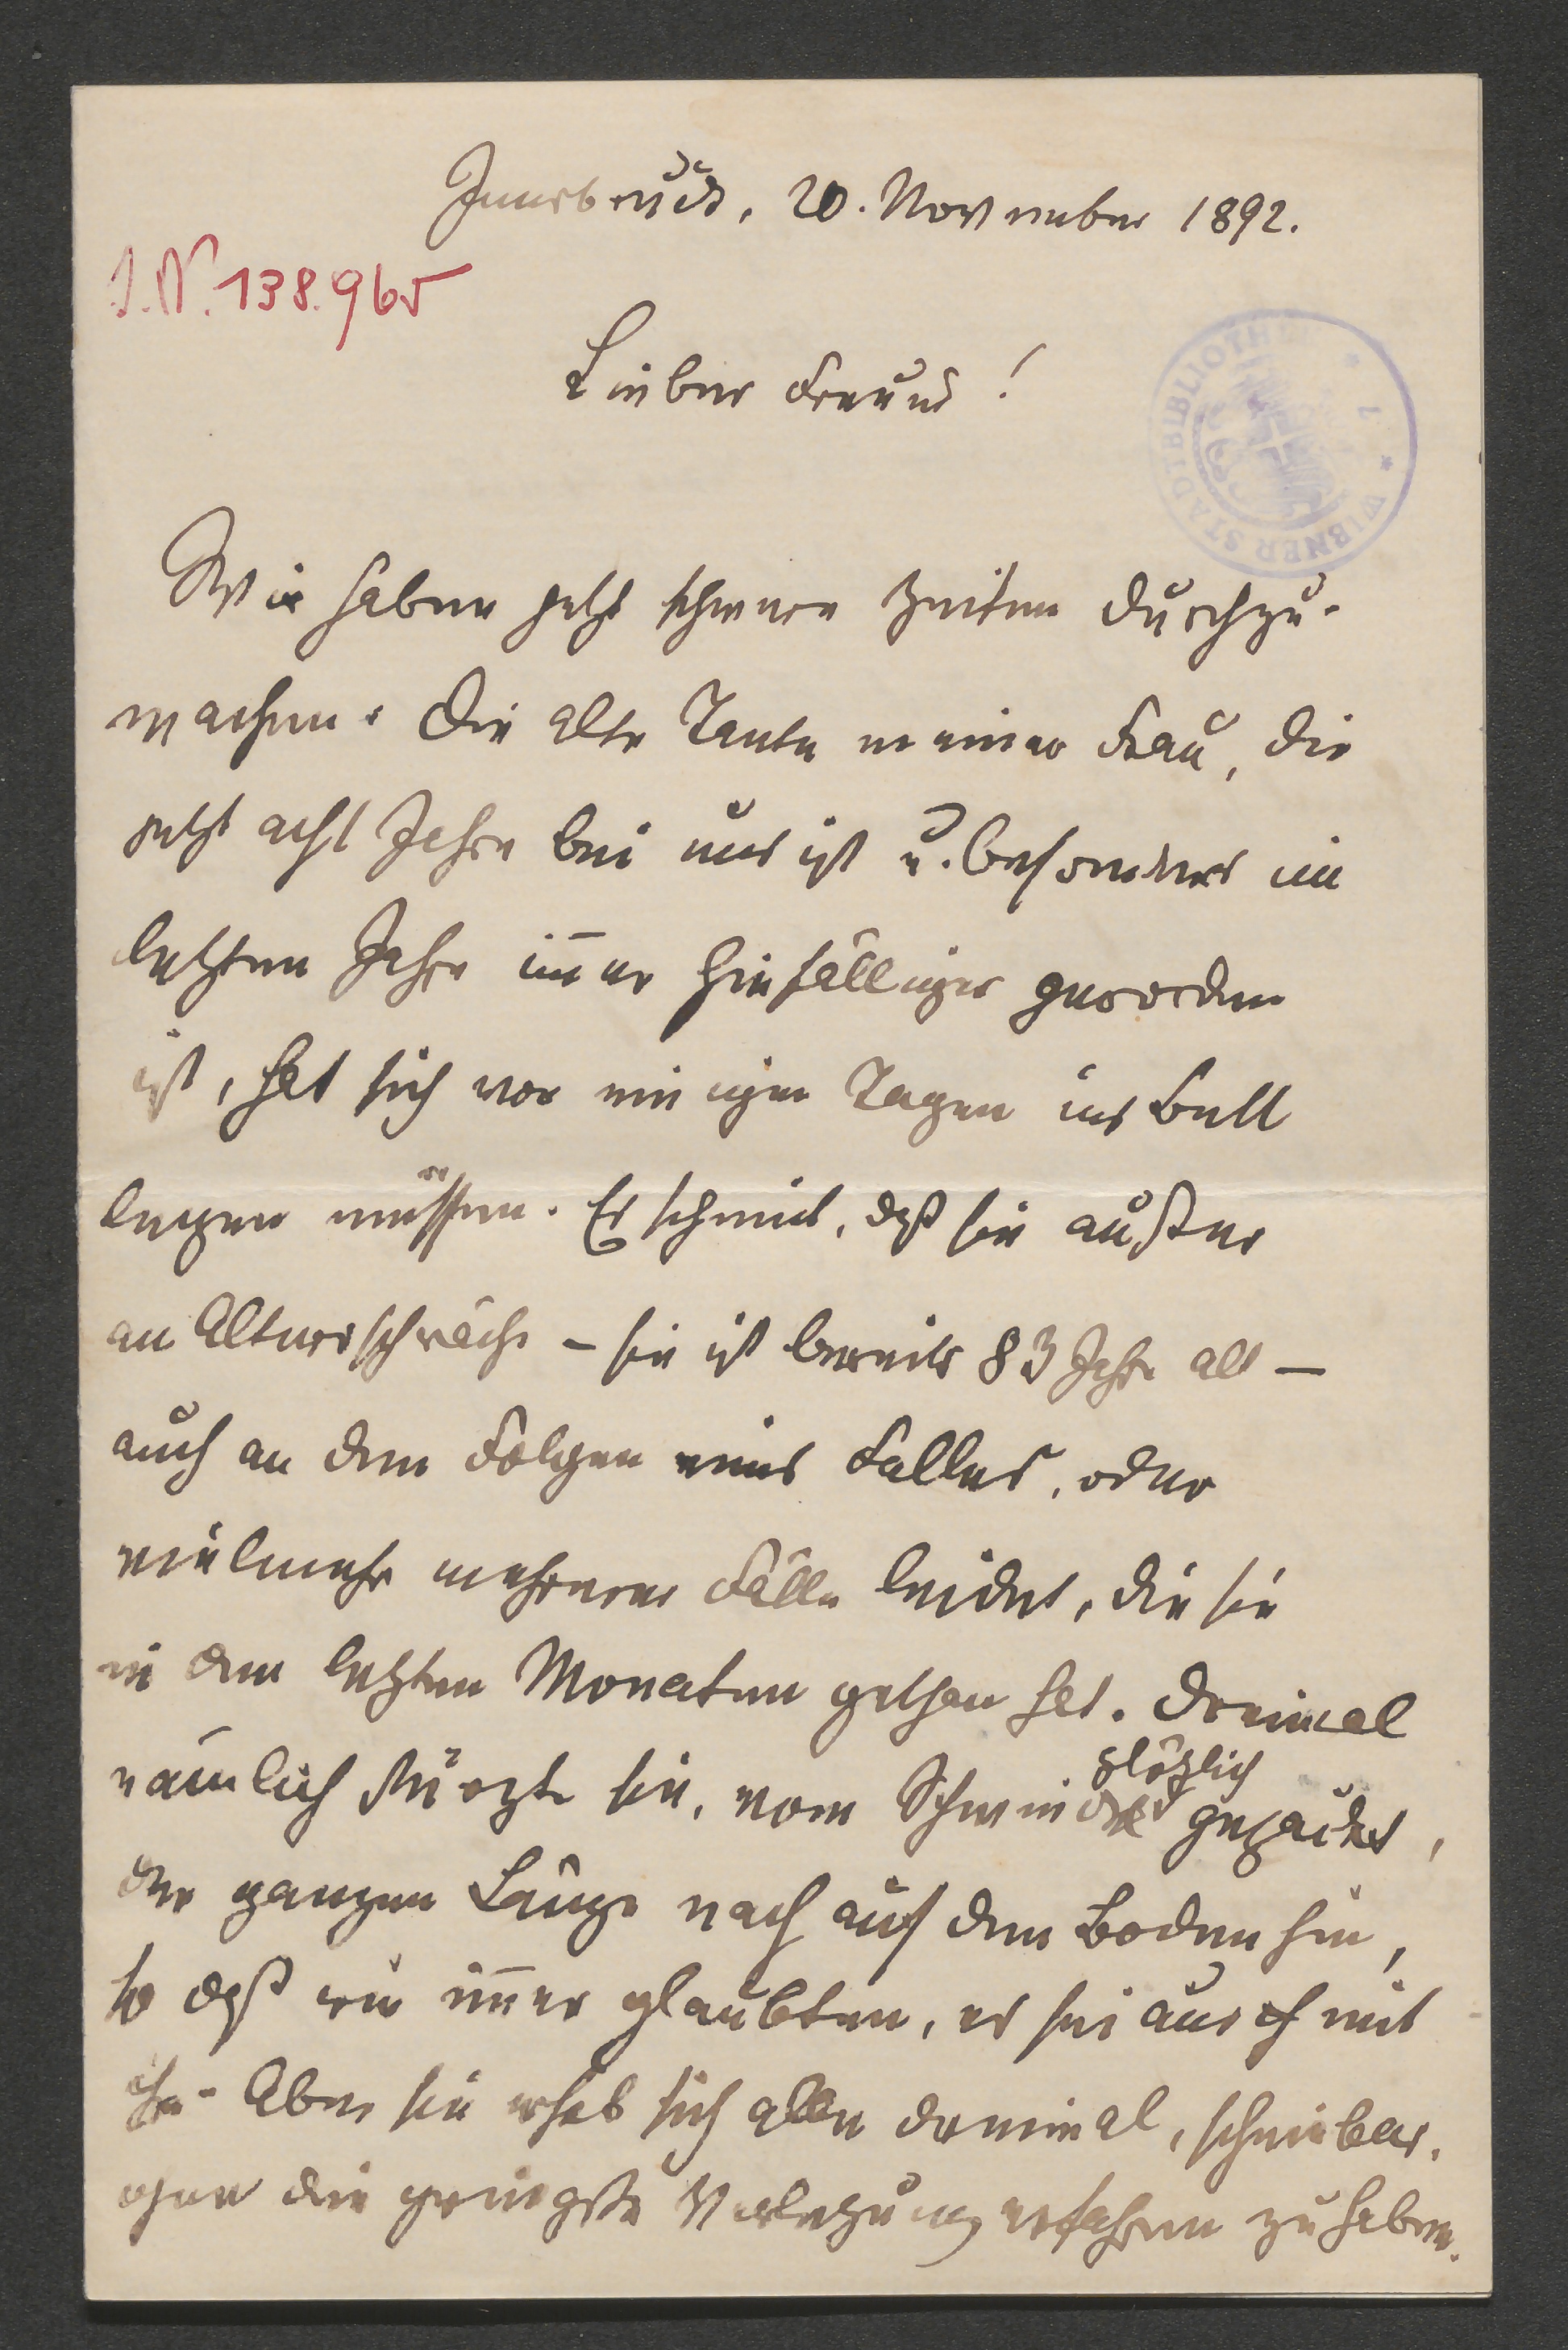 Innsbruck, 20. November 1892.
I.N. 138.965
Lieber Freund!
WIENER STADTBIBLIOTH
Wir haben jetzt schwere Zeiten durchzu-
machen. Die alte Tante meiner Frau, die
jetzt acht Jahre bei uns ist u. besonders im
letzten Jahre im̅er hinfälliger geworden
ist, hat sich vor einigen Tagen ins Bett
legen müssen. Es scheint, daß sie außer
an Altersschwäche – sie ist bereits 83 Jahre alt –
auch an den Folgen eines Falles, oder
vielmehr mehrerer Fälle leidet, die sie
in den letzten Monaten gethan hat. Dreimal
nämlich stürzte sie, vom Schwindel plötzlich gepackt,
der ganzen Länge nach auf den Boden hin,
so daß wir im̅er glaubten, es sei aus mit
ihr. Aber sie erhob sich alle dreimal, scheinbar,
ohne die geringste Verletzung erfahren zu haben.